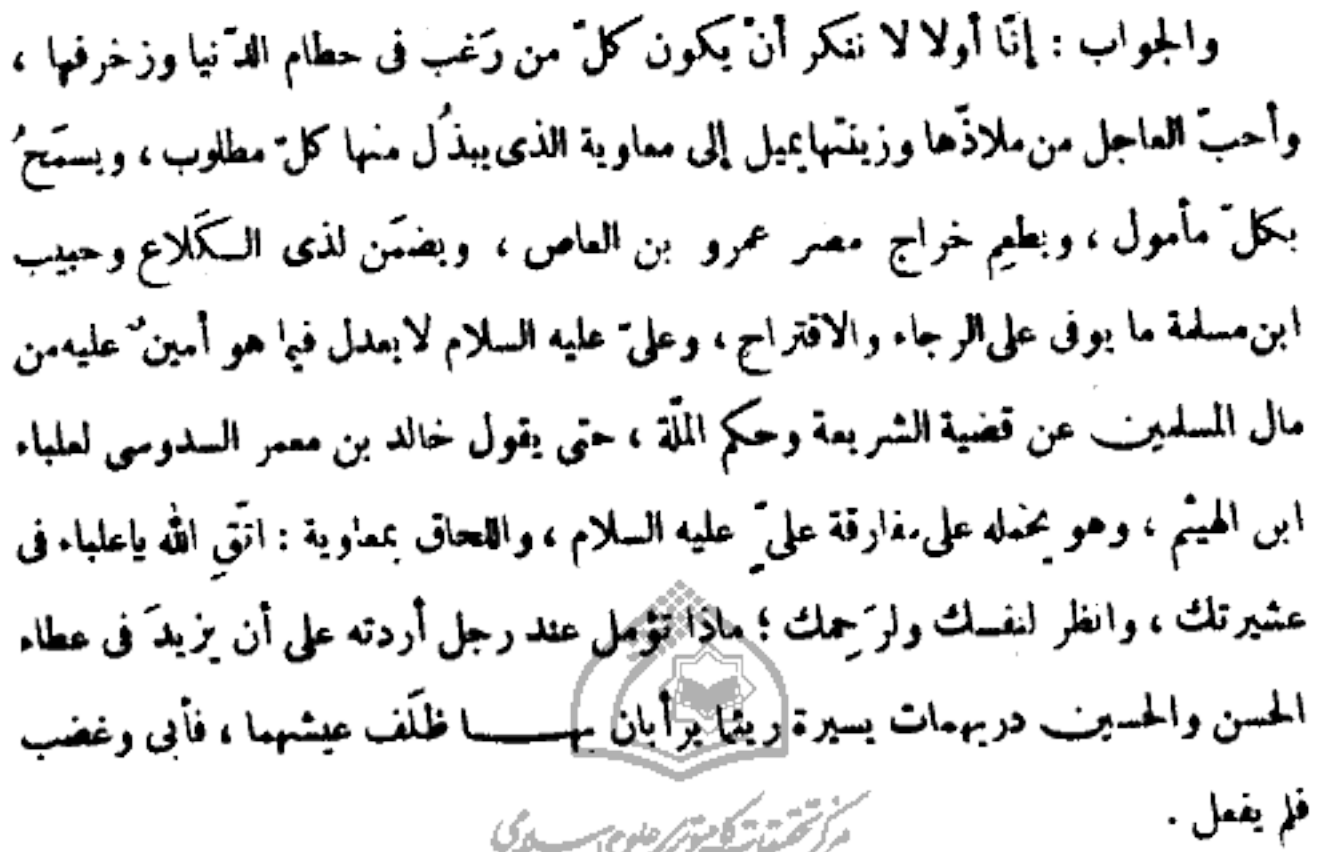 والجواب : إنّا أولا لا ننكر أنْ يكون كلّ من رَغب فى حطام الدّنيا وزخرفها ،
وأحبّ العاجل من ملاذّها وزينتها يميل إلى معاوية الذى يبذُل منها كلّ مطلوب ، ويسمَحُ
بكلّ مأمول ، ويطعِم خراج مصر عمرو بن العاص ، ويضمَن لذى الكَلاع وحبيب
ابن مسلمة ما يوفى على الرجاء والاقتراح ، وعلىّ عليه السلام لا يعدل فيما هو أمينٌ عليه من
مال المسلمين عن قضية الشريعة وحكم الملّة ، حتى يقول خالد بن معمر السدوسى لعلباء
ابن الهيثم ، وهو يحمله على مفارقة علىّ عليه السلام ، واللحاق بمعاوية : اتّقِ الله ياعلباء فى
عشيرتك ، وانظر لنفسك ولرَحِمك ؛ ماذا تؤمل عند رجل أردته على أن يزيدَ فى عطاء
الحسن والحسين دريهمات يسيرة ريثما يرأبان بها ظلَف عيشهما ، فأبى وغضب
فلم يفعل .
مركز تحقيقات كامپيوترى علوم اسلامى